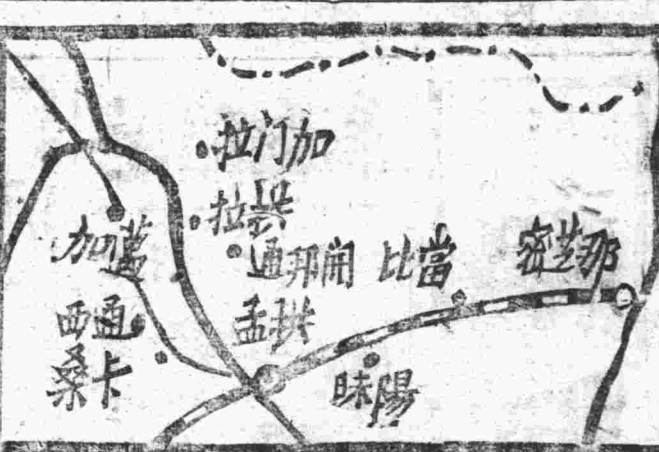 拉门加
拉
加
通邦開
比當
密芝那
西通
孟拱
桑卡
陽